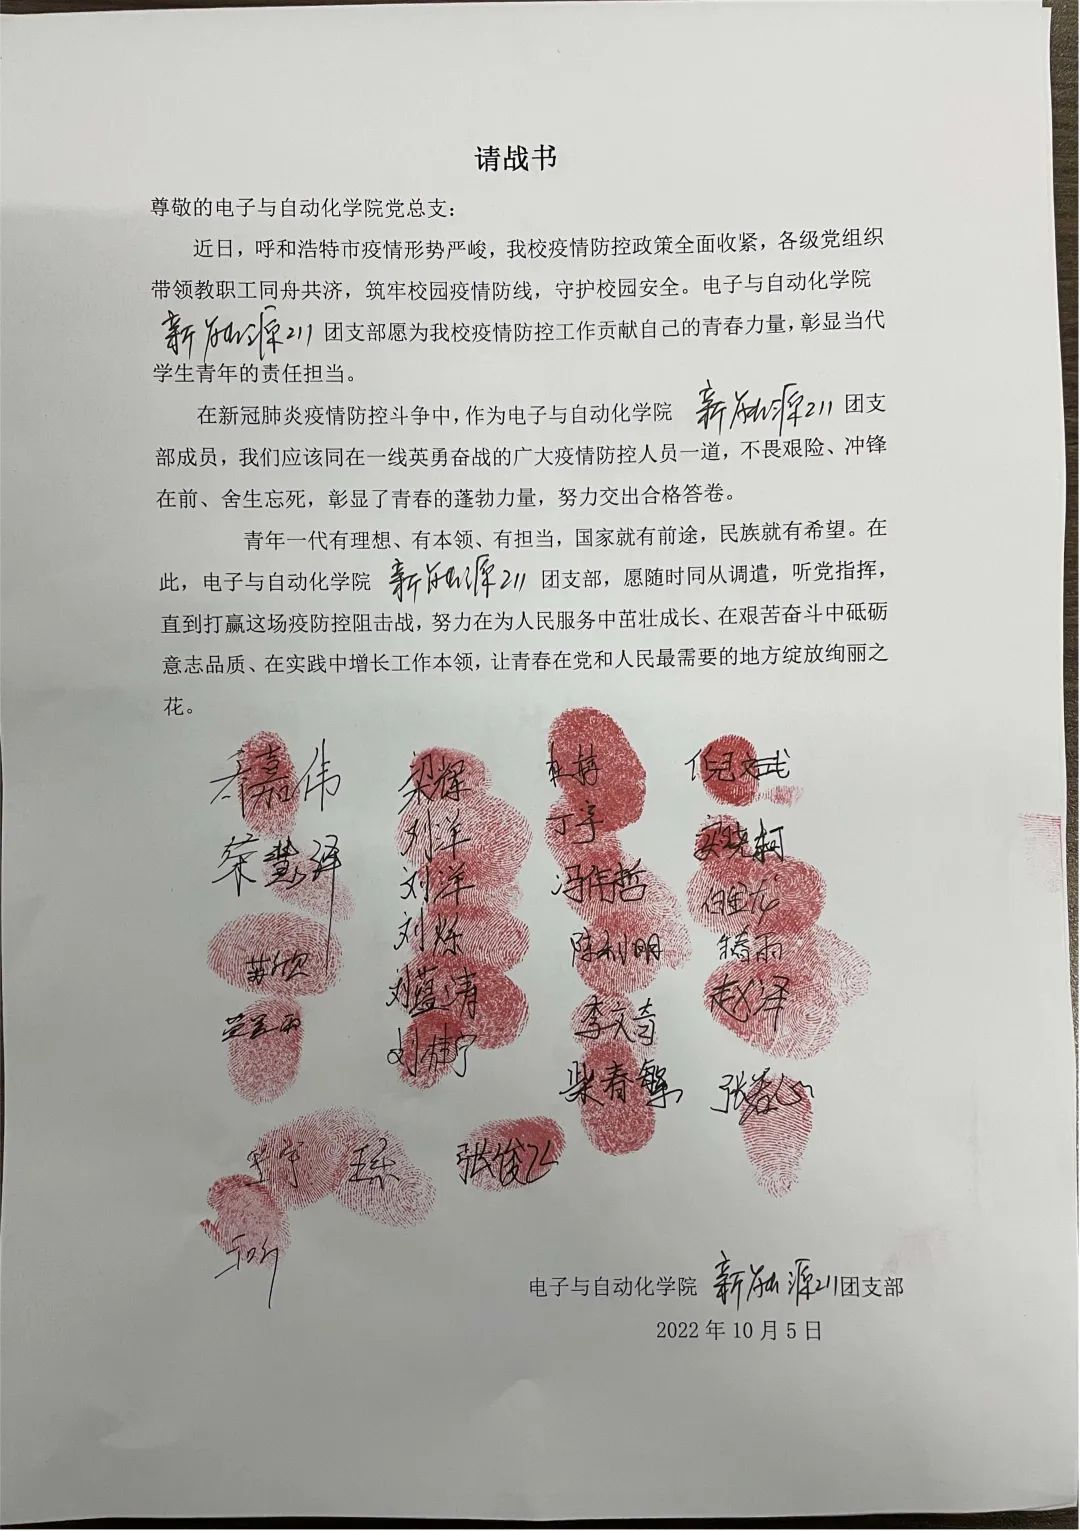 请战书
尊敬的电子与自动化学院党总支：
近日，呼和浩特市疫情形势严峻，我校疫情防控政策全面收紧，各级党组织
带领教职工同舟共济，筑牢校园疫情防线，守护校园安全。电子与自动化学院
新能源211 团支部愿为我校疫情防控工作贡献自己的青春力量，彰显当代
学生青年的责任担当。
在新冠肺炎疫情防控斗争中，作为电子与自动化学院 新能源211 团支
部成员，我们应该同在一线英勇奋战的广大疫情防控人员一道，不畏艰险、冲锋
在前、舍生忘死，彰显了青春的蓬勃力量，努力交出合格答卷。
青年一代有理想、有本领、有担当，国家就有前途，民族就有希望。在
此，电子与自动化学院 新能源211 团支部，愿随时同从调遣，听党指挥，
直到打赢这场疫防控阻击战，努力在为人民服务中茁壮成长、在艰苦奋斗中砥砺
意志品质、在实践中增长工作本领，让青春在党和人民最需要的地方绽放绚丽之
花。
嘉伟 梁辉 倪文武
荣慧泽 刘洋 丁宇
刘洋 冯伟哲
刘烁 陈利明 雨
刘蓝清 李文奇 赵泽
刘桂宁 梁春 张
王宇 张俊飞
电子与自动化学院 新能源211团支部
2022 年 10 月 5 日